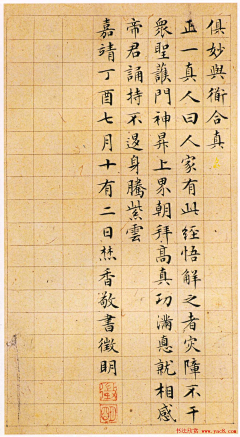 俱妙與衜合真
正一真人曰人家有此經悟解之者灾障不干
眾聖護門神昇上界朝拜高真功滿惪就相感
帝君誦持不退身騰紫雲
嘉靖丁酉七月十有二日焚香敬書徵明
书法欣赏 www.yac8.com